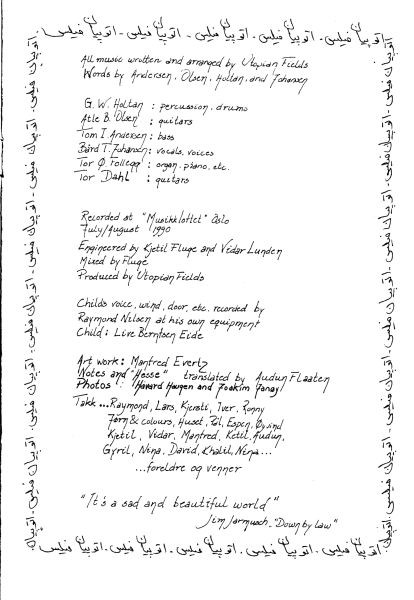 اتوپیان فیلس - اتوپیان فیلس - اتوپیان فیلس - اتوپیان فیلس - اتوپیان فیلس
All music written and arranged by Utopian Fields
Words by Andersen, Olsen, Holtan, and Johansen
G. W. Holtan : percussion, drums
Atle B. Olsen : guitars
Tom I. Andersen : bass
Bård T. Johansen : vocals, voices
Tor Ø. Follegg : organ, piano, etc.
Tor Dahl : guitars
Recorded at "Musikkloftet" Oslo
July/August 1990
Engineered by Kjetil Fluge and Vidar Lunden
Mixed by Fluge
Produced by Utopian Fields
Childs voice, wind, door, etc. recorded by
Raymond Nilsen at his own equipment
Child: Live Berntsen Eide
Art work: Manfred Evertz
Notes and "Hesse" translated by Audun Flaaten
Photos : Håvard Haugen and Joakim
Takk ... Raymond, Lars, Kjersti, Iver, Ronny
& colours, Huset, Pål, Espen, Øyvind
Kjetil, Vidar, Manfred, Ketil, Audun,
Gyril, Nina, David, Khalil, Nina...
...foreldre og venner
"It's a sad and beautiful world"
Jim Jarmusch, "Down by law"
اتوپیان فیلس - اتوپیان فیلس - اتوپیان فیلس - اتوپیان فیلس - اتوپیان فیلس